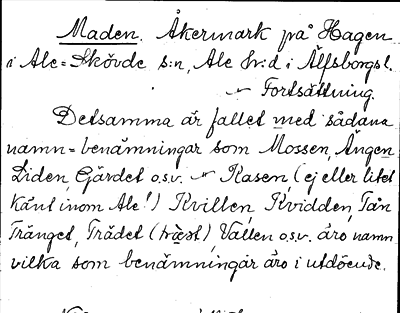 Maden. Åkermark på Hagen
i Ale=Skövde s:n, Ale hr:d i Älfsborgs l.
Fortsättning.
Detsamma är fallet med sådana
namn=benämningar som Mossen, Ängen
Liden, Gärdet o.s.v. Rasen, (ej eller litet
känt inom Ale!) Kvillen, Kvidden, Tån
Tränget, Trädet (träest), Vallen o.s.v. äro namn
vilka som benämningar äro i utdöende.